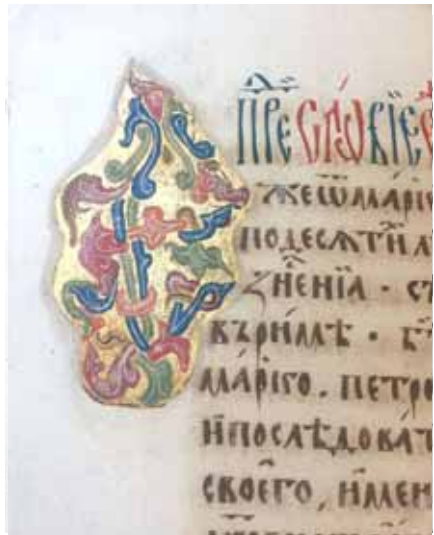 Прⷣеслѡвїе
жеѿмарк
подесѧтил
знⷭ҇енїа · съ
въримѣ · б
марко. петро
ипослѣдоват
своего, имен